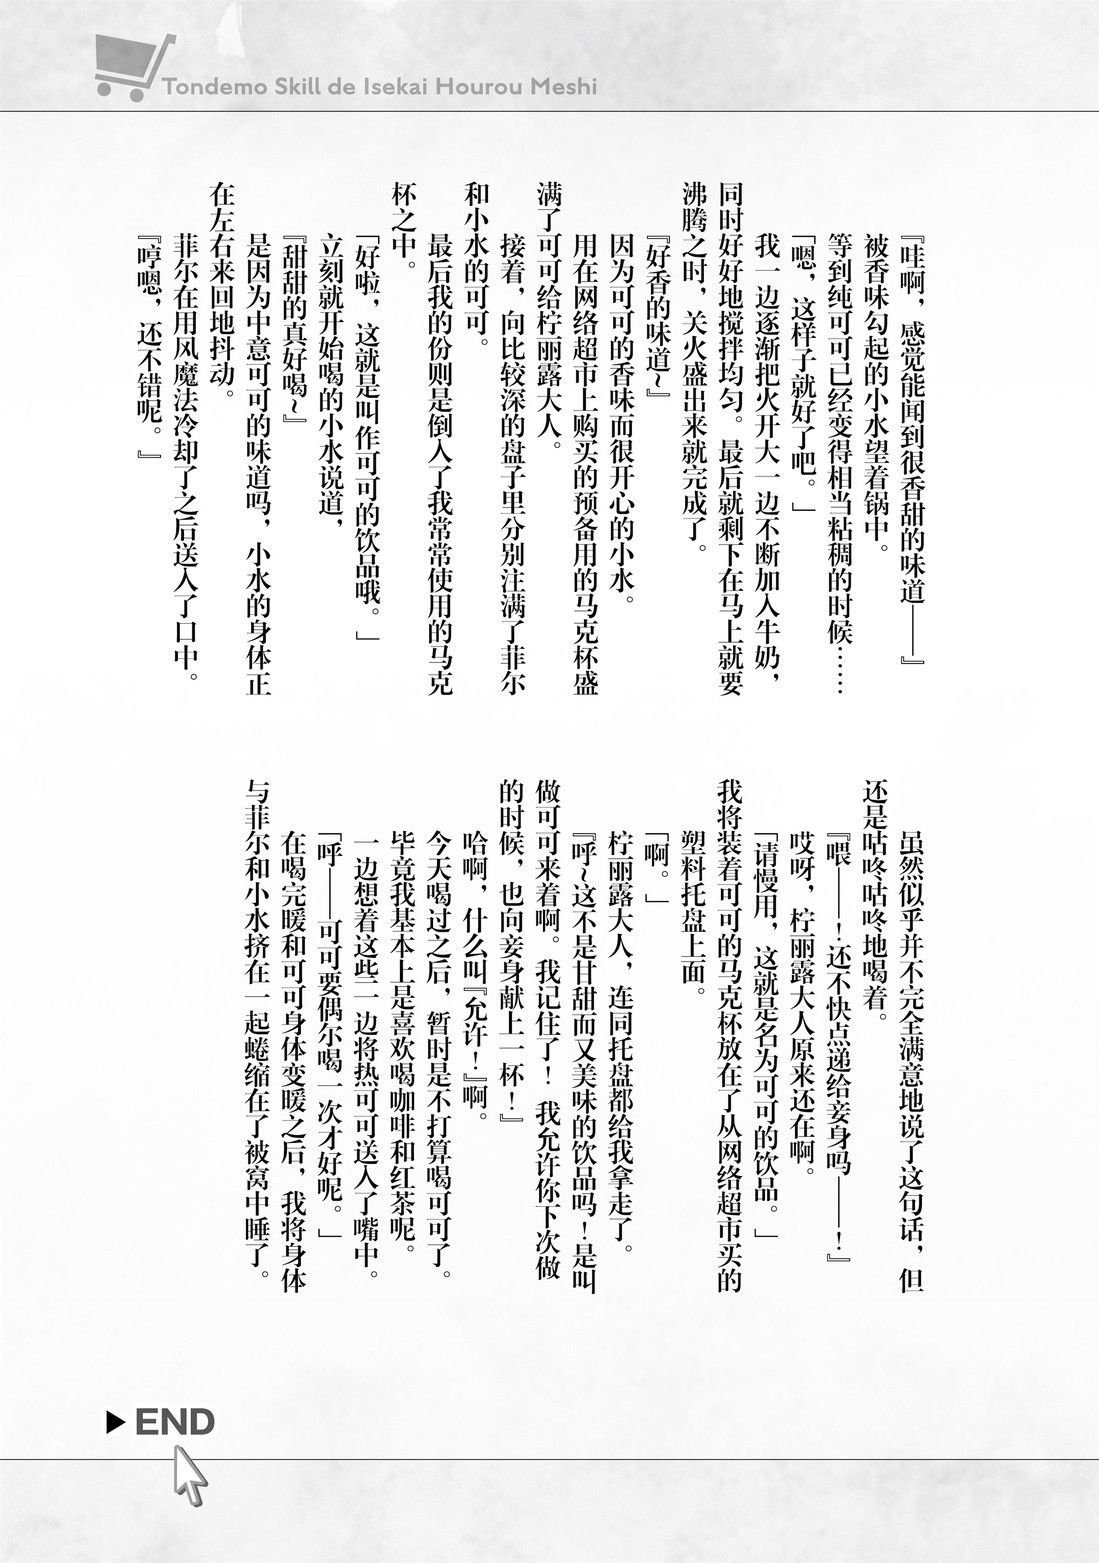 Tondemo Skill de Isekai Hourou Meshi
『哇啊，感觉能闻到很香甜的味道——』
被香味勾起的小水望着锅中。
等到纯可可已经变得相当粘稠的时候……
「嗯，这样子就好了吧。」
我一边逐渐把火开大一边不断加入牛奶，
同时好好地搅拌均匀。最后就剩下在马上就要
沸腾之时，关火盛出来就完成了。
『好香的味道~』
因为可可的香味而很开心的小水。
用在网络超市上购买的预备用的马克杯盛
满了可可给柠丽露大人。
接着，向比较深的盘子里分别注满了菲尔
和小水的可可。
最后我的份则是倒入了我常常使用的马克
杯之中。
「好啦，这就是叫作可可的饮品哦。」
立刻就开始喝的小水说道，
『甜甜的真好喝~』
是因为中意可可的味道吗，小水的身体正
在左右来回地抖动。
菲尔在用风魔法冷却了之后送入了口中。
『哼嗯，还不错呢。』
虽然似乎并不完全满意地说了这句话，但
还是咕咚咕咚地喝着。
『喂——！还不快点递给妾身吗——！』
哎呀，柠丽露大人原来还在啊。
「请慢用，这就是名为可可的饮品。」
我将装着可可的马克杯放在了从网络超市买的
塑料托盘上面。
「啊。」
柠丽露大人，连同托盘都给我拿走了。
『呼~这不是甘甜而又美味的饮品吗！是叫
做可可来着啊。我记住了！我允许你下次做
的时候，也向妾身献上一杯！』
哈啊，什么叫『允许！』啊。
今天喝过之后，暂时是不打算喝可可了。
毕竟我基本上是喜欢喝咖啡和红茶呢。
一边想着这些一边将热可可送入了嘴中。
「呼——可可要偶尔喝一次才好呢。」
在喝完暖和可可身体变暖之后，我将身体
与菲尔和小水挤在一起蜷缩在了被窝中睡了。
END